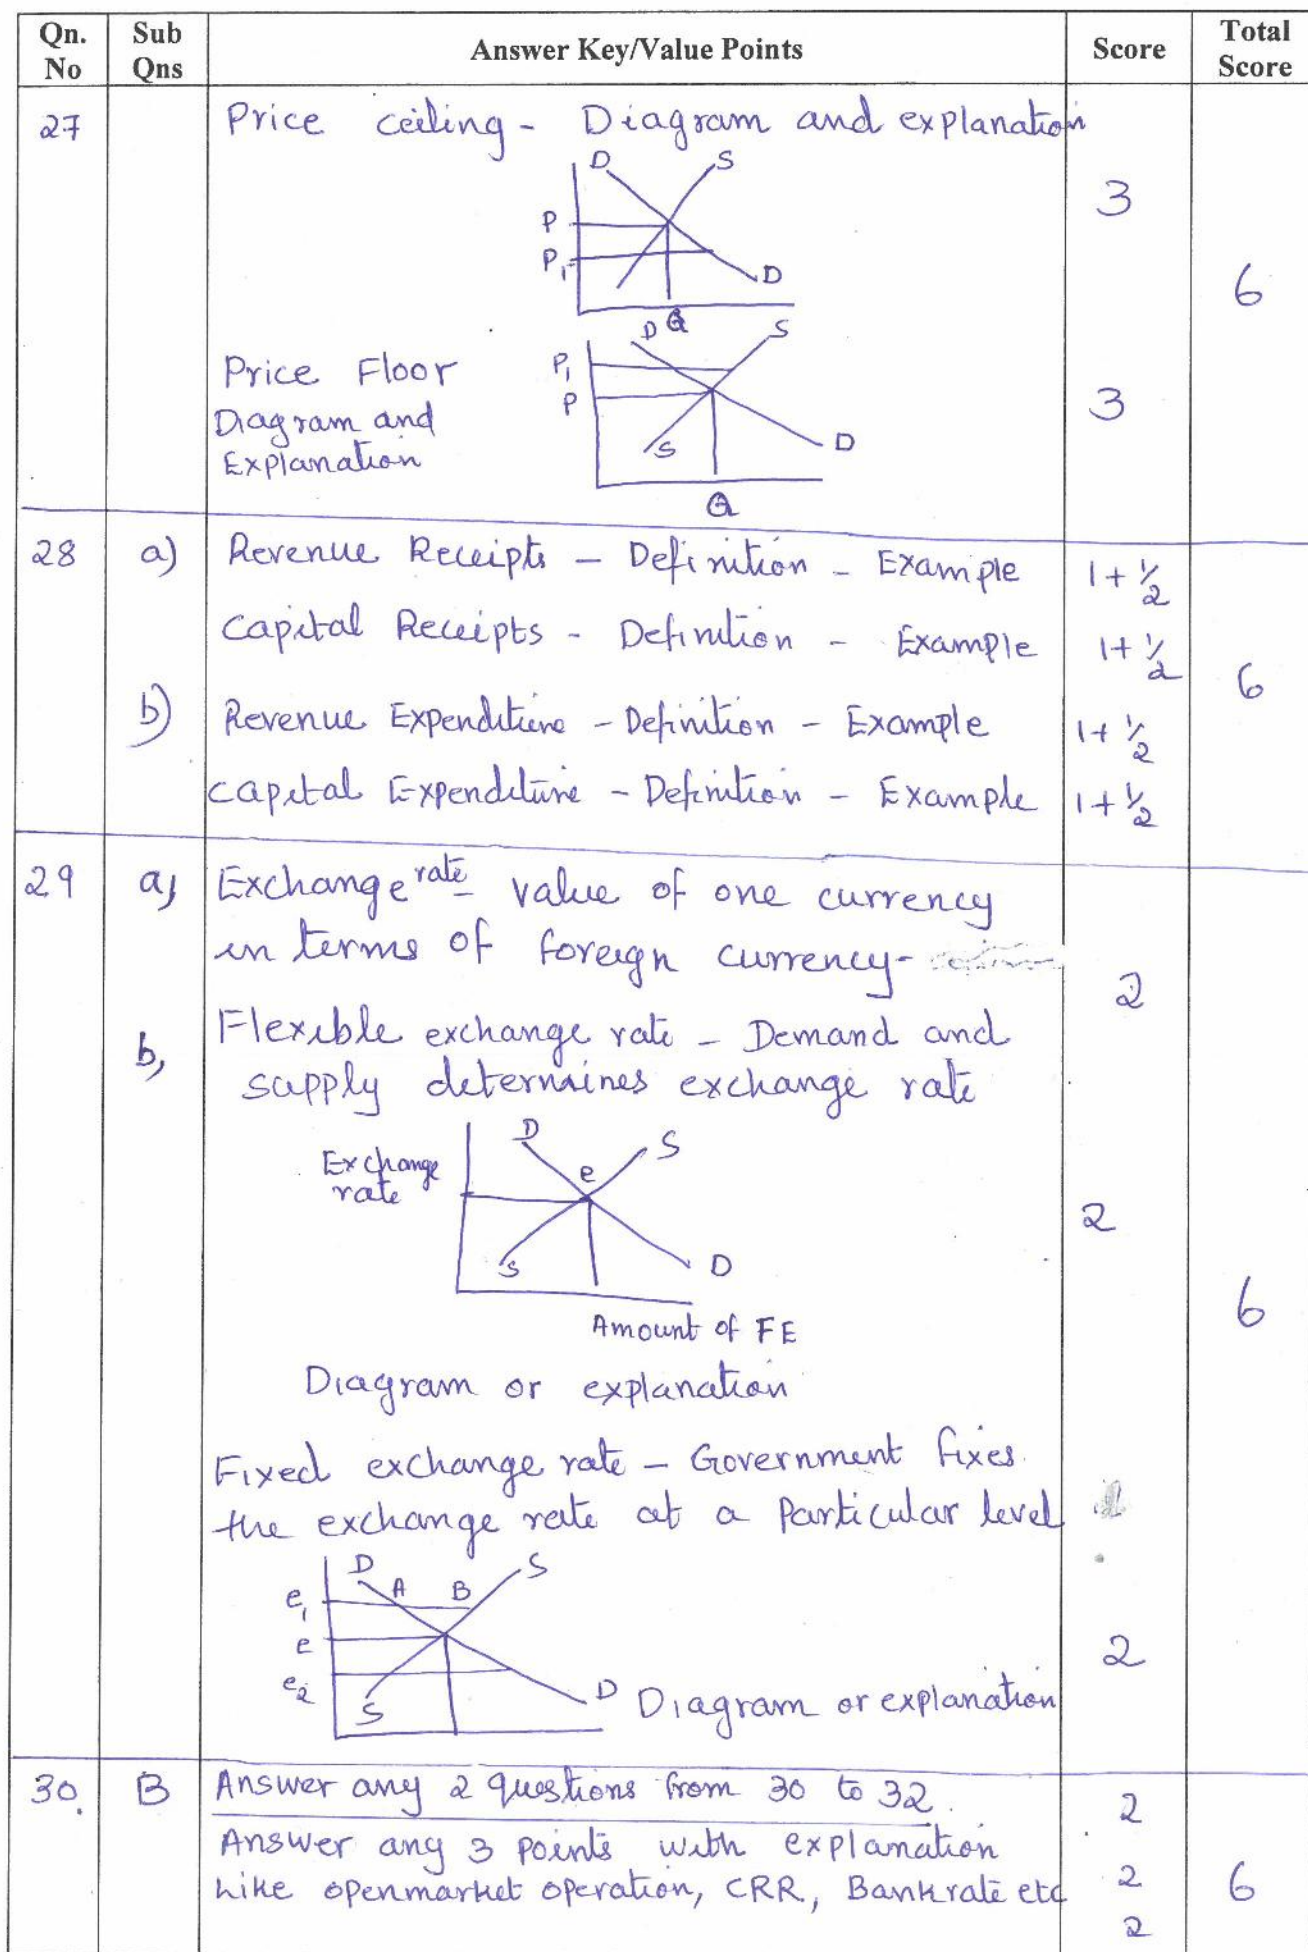 Qn. No Sub Qns Answer Key/Value Points Score Total Score
27 Price ceiling - Diagram and explanation
D S
3
P
P1
D
6
Q
D S
Price Floor P1
P 3
Diagram and
D
S
Explanation
Q
28 a) Revenue Receipts - Definition - Example 1+½
Capital Receipts - Definition - Example 1+½
6
b) Revenue Expenditure - Definition - Example 1+½
Capital Expenditure - Definition - Example 1+½
29 a) Exchange rate - value of one currency
in terms of foreign currency-
2
b) Flexible exchange rate - Demand and
supply determines exchange rate
D S
Exchange rate e
2
S D
6
Amount of FE
Diagram or explanation
Fixed exchange rate - Government fixes
the exchange rate at a particular level
D S
e1 A B
e
2
e2
S D Diagram or explanation
30. B Answer any 2 questions from 30 to 32.
2
Answer any 3 points with explanation
Like openmarket operation, CRR, Bankrate etc 2 6
2